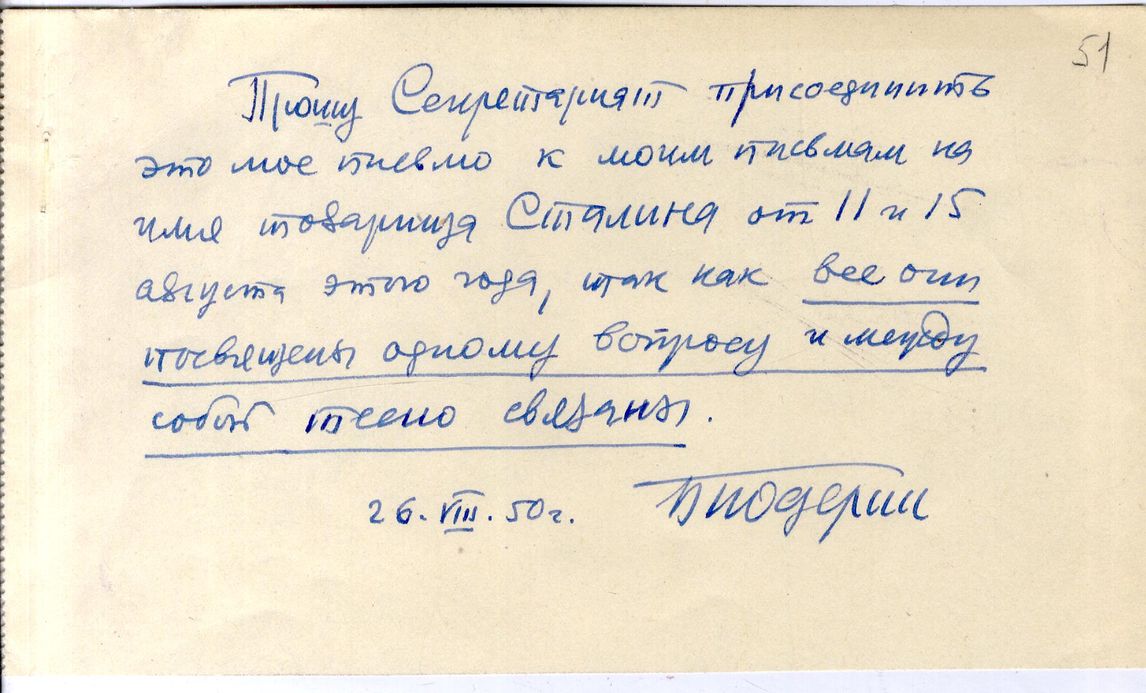 51
Прошу Секретариат присоединить
это мое письмо к моим письмам на
имя товарища Сталина от 11 и 15
августа этого года, так как все они
посвящены одному вопросу и между
собой тесно связаны.
26.VIII.50г.